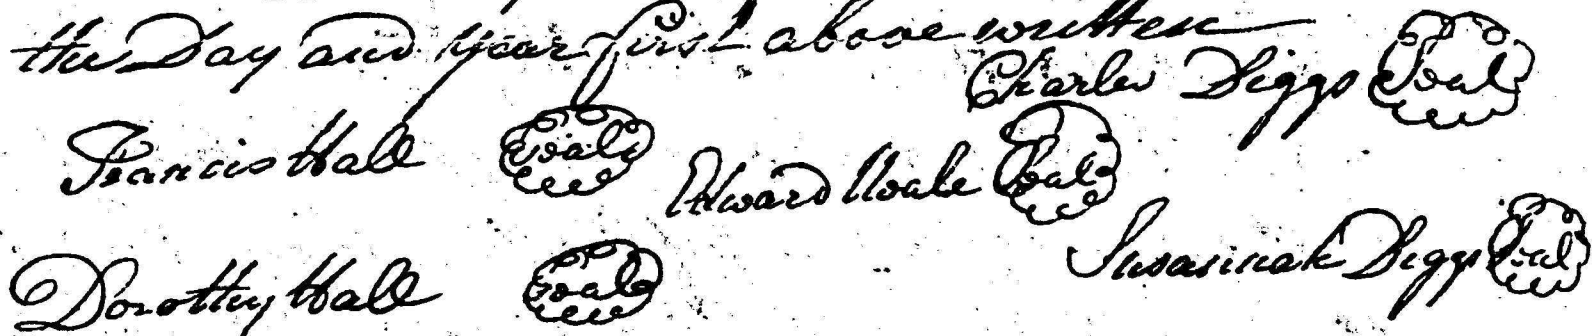 the Day and year first above written
Charles Diggs Seal
Francis Hall Seal
Edward Neale Seal
Susannah Diggs Seal
Dorothy Hall Seal